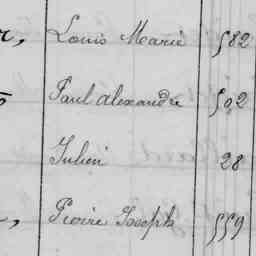 r, Louis Marie 582
Paul alexandre 502
Julien 28
, Pierre Joseph 559